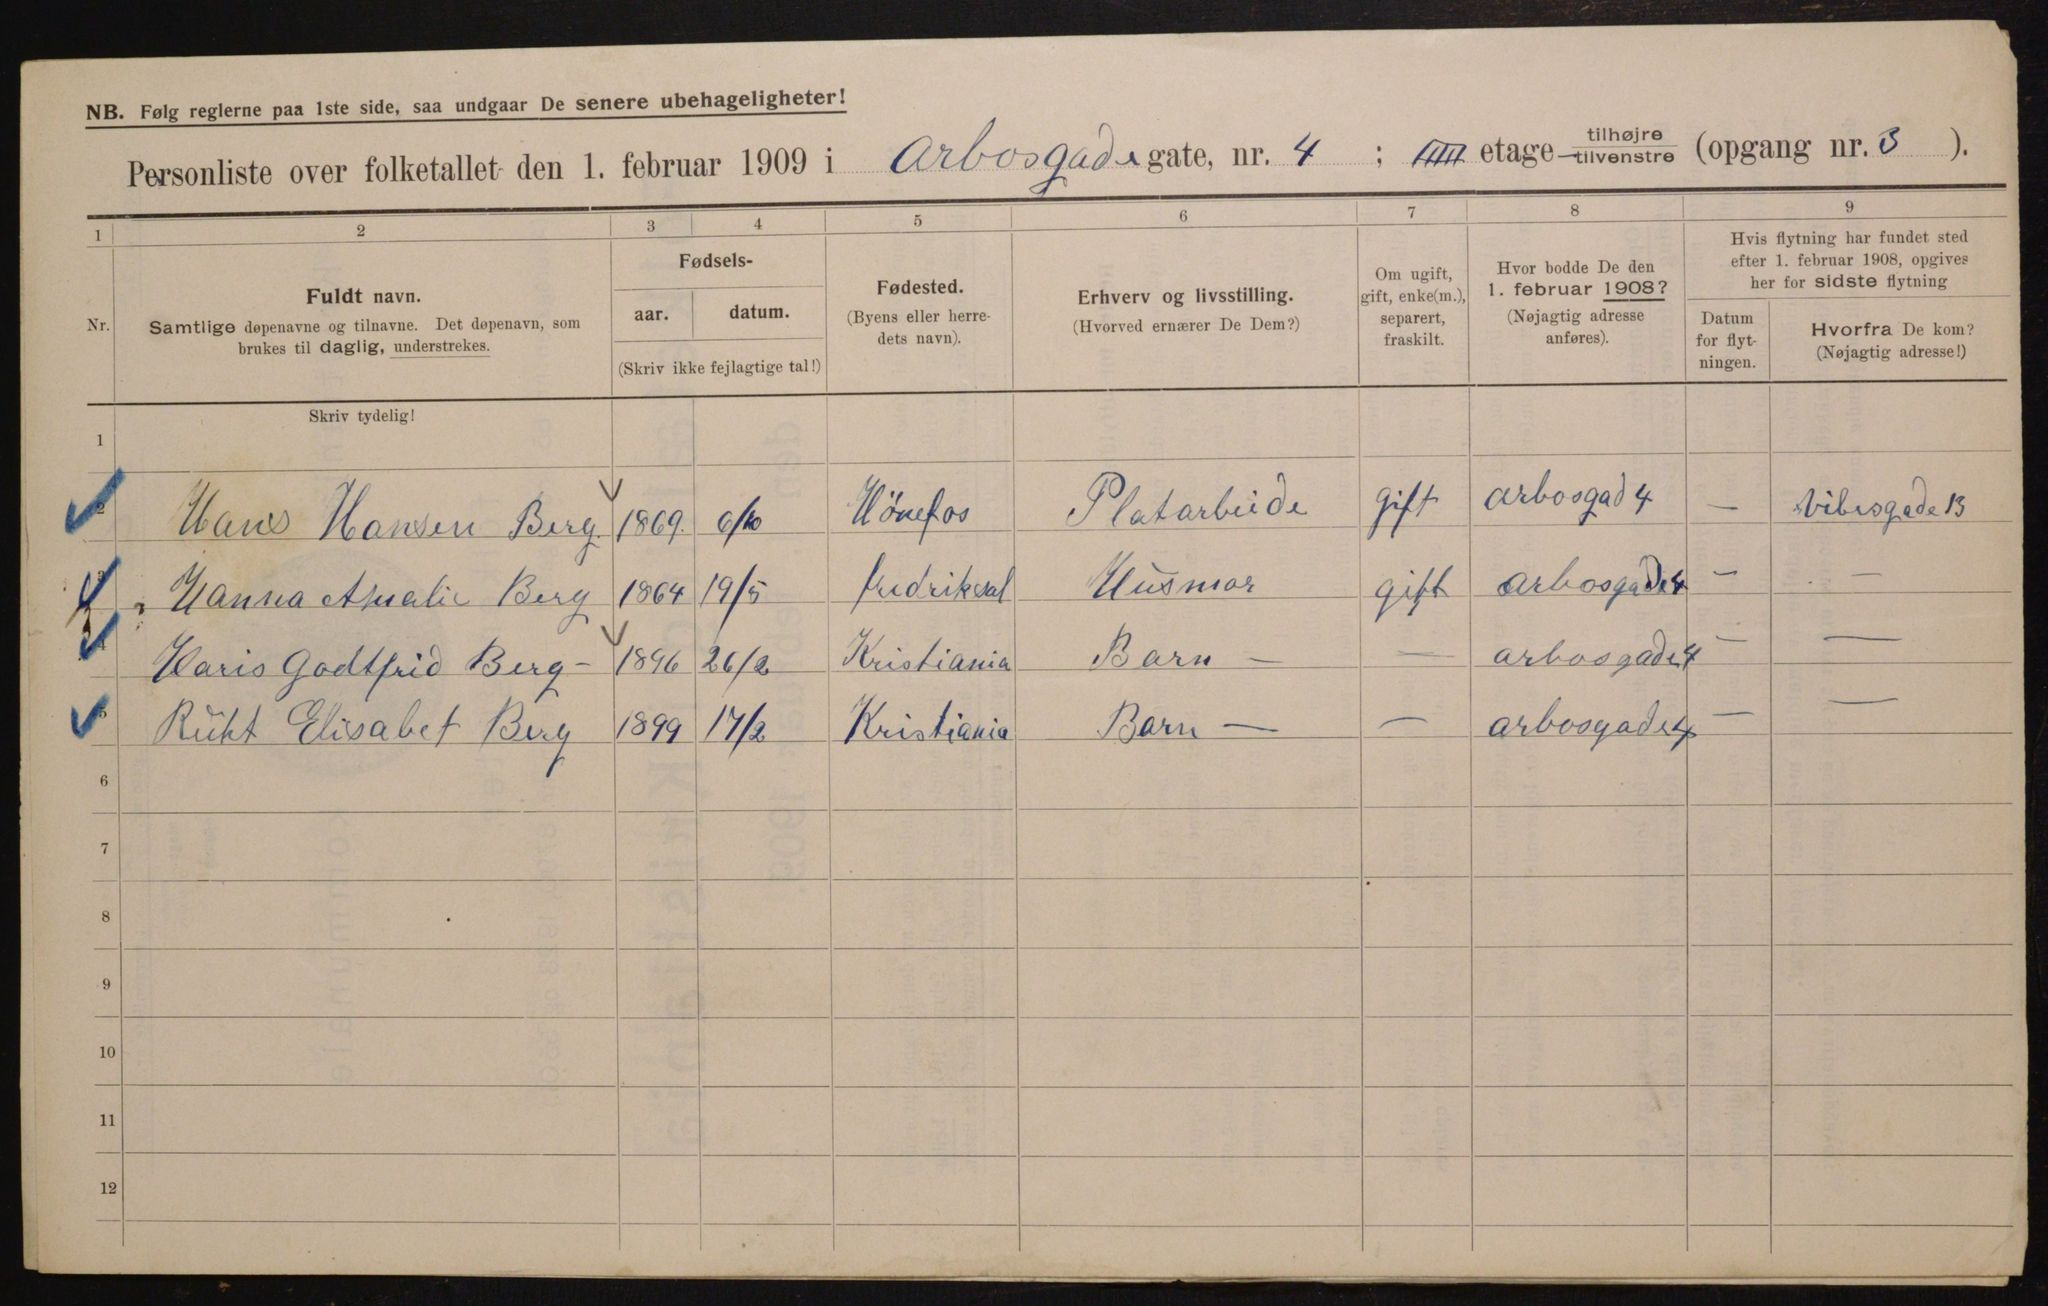 NB. Følg reglerne paa 1ste side, saa undgaar De senere ubehageligheter!
Personliste over folketallet den 1. februar 1909 i Arbosgade gate, nr. 4 ; IIII etage tilhøjre tilvenstre (opgang nr. 3 ).
1 2 3 4 5 6 7 8 9
Nr.
Fuldt navn.
Samtlige døpenavne og tilnavne. Det døpenavn, som
brukes til daglig, understrekes.
Fødsels-
aar. datum.
(Skriv ikke fejlagtige tal!)
Fødested.
(Byens eller herre-
dets navn).
Erhverv og livsstilling.
(Hvorved ernærer De Dem?)
Om ugift,
gift, enke(m.),
separert,
fraskilt.
Hvor bodde De den
1. februar 1908?
(Nøjagtig adresse
anføres).
Hvis flytning har fundet sted
efter 1. februar 1908, opgives
her for sidste flytning
Datum
for flyt-
ningen.
Hvorfra De kom?
(Nøjagtig adresse!)
Skriv tydelig!
1
2 Hans Hansen Berg. 1869. 6/10 Hönefos Platarbeide gift arbosgad 4 — Vibesgade 13
3 Hanna Amalie Berg 1864 19/5 fredriksal Husmor gift arbosgade 4 — —
4 Haris Godtfrid Berg — 1896 26/2 Kristiania Barn — — arbosgade 4 — —
5 Ruht Elisabet Berg 1899 17/2 Kristiania Barn — — arbosgade 4 — —
6
7
8
9
10
11
12